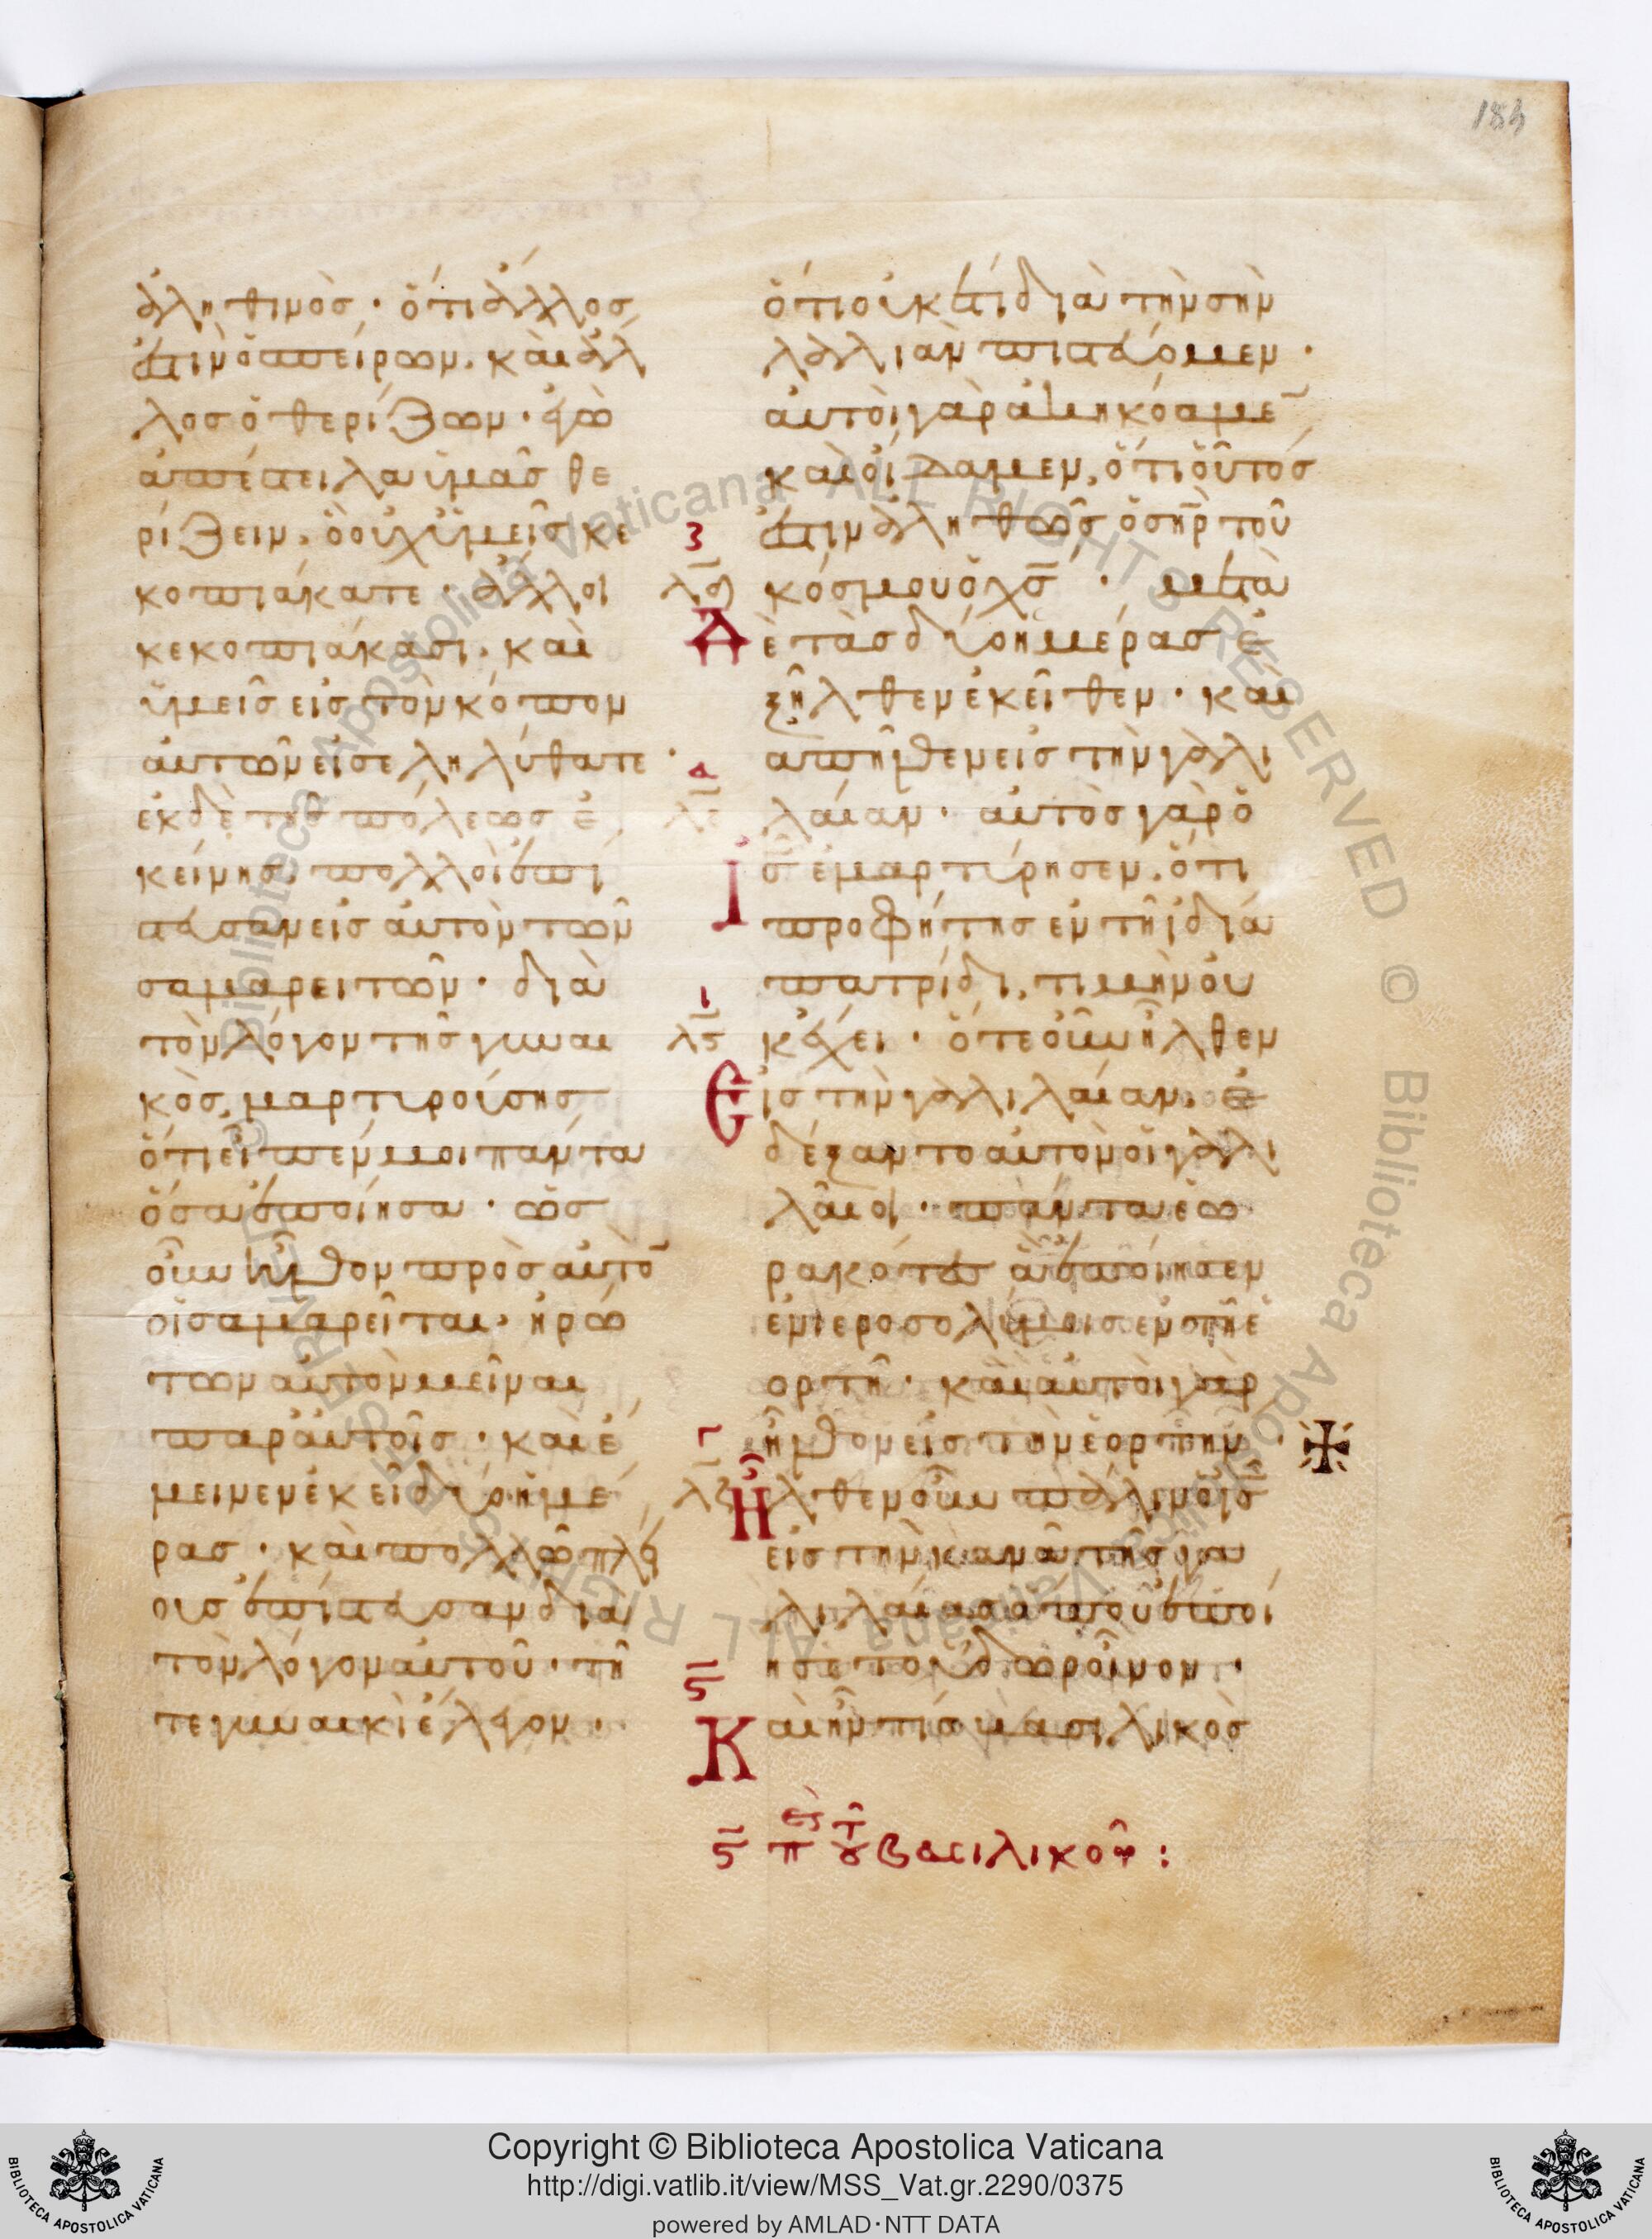 183
ἀληθινὸσ · ὅτι ἄλλοσ
ἐστιν ὁ σπείρων, καὶ ἄλ
λοσ ὁ θερίζων · ἐγὼ
ἀπέστειλα ὑμᾶσ θε
ρίζειν, ὃ οὐχ ὑμεῖσ κε
κοπιάκατε · ἄλλοι
κεκοπιάκασι · καὶ
ὑμεῖσ εἰσ τὸν κόπον
αὐτῶν εἰσεληλύθατε ·
ἐκ δὲ τῆσ πόλεωσ ἐ
κείνησ, πολλοὶ ἐπί
στευσαν εἰσ αὐτὸν τῶν
σαμαρειτῶν · διὰ
τὸν λόγον τῆσ γυναι
κὸσ, μαρτυρούσησ
ὅτι εἶπέν μοι πάντα
ὅσα ἐποίησα · ὡσ
οὖν ἦλθον πρὸσ αὐτο̅
οἱ σαμαρεῖται, ἠρώ
των αὐτὸν μεῖναι
παρ' αὐτοῖσ · καὶ ἔ
μεινεν ἐκεῖ δύο ἡμέ
ρασ · καὶ πολλῶ πλεί
ουσ ἐπίστευσαν διὰ
τὸν λόγον αὐτοῦ · τῆ
τε γυναικὶ ἔλεγον ·
ὅτι οὐκέτι διὰ τὴν σὴν
λαλιὰν πιστεύομεν ·
αὐτοὶ γὰρ ἀκηκόαμε̅
καὶ οἴδαμεν, ὅτι οὗτόσ
ἐστιν ἀληθῶσ ὁ σ̅η̅ρ̅ τοῦ
κόσμου ὁ χ̅σ̅ · μετὰ
Δὲ τὰσ δύο ἡμέρασ ἐ
ξῆλθεν ἐκεῖθεν · και
ἀπῆλθεν εἰσ τὴν γαλι
λαίαν · αὐτὸσ γὰρ ὁ
Ι̅σ̅ ἐμαρτύρησεν, ὅτι
προφήτησ ἐν τῆ ἰδία
πατρίδι, τιμὴν οὐ
κ ἔχει · ὅτε οὖν ἦλθεν
Εἰσ τὴν γαλιλαίαν, ἐ
δέξαντο αὐτὸν οἱ γαλι
λαῖοι · πάντα ἑω
ρακότεσ ἃ ἐποίησεν
ἐν ἱεροσολύμοισ ἐν τῆ ἑ
ορτῆ · καὶ αὐτοὶ γὰρ
ἦλθον εἰσ τὴν ἑορτήν ·
Ἦλθεν οὖν πάλιν ὁ ι̅σ̅
εἰσ τὴν κανᾶ τῆσ γα
λιλαίασ ὅπου ἐποί
ησε τὸ ὕδωρ οἶνον ·
Καὶ ἦν τισ βασιλικὸσ
ς̅ π ε ϛ τοῦ βασιλικοῦ :
Copyright © Biblioteca Apostolica Vaticana
http://digi.vatlib.it/view/MSS_Vat.gr.2290/0375
powered by AMLAD·NTT DATA